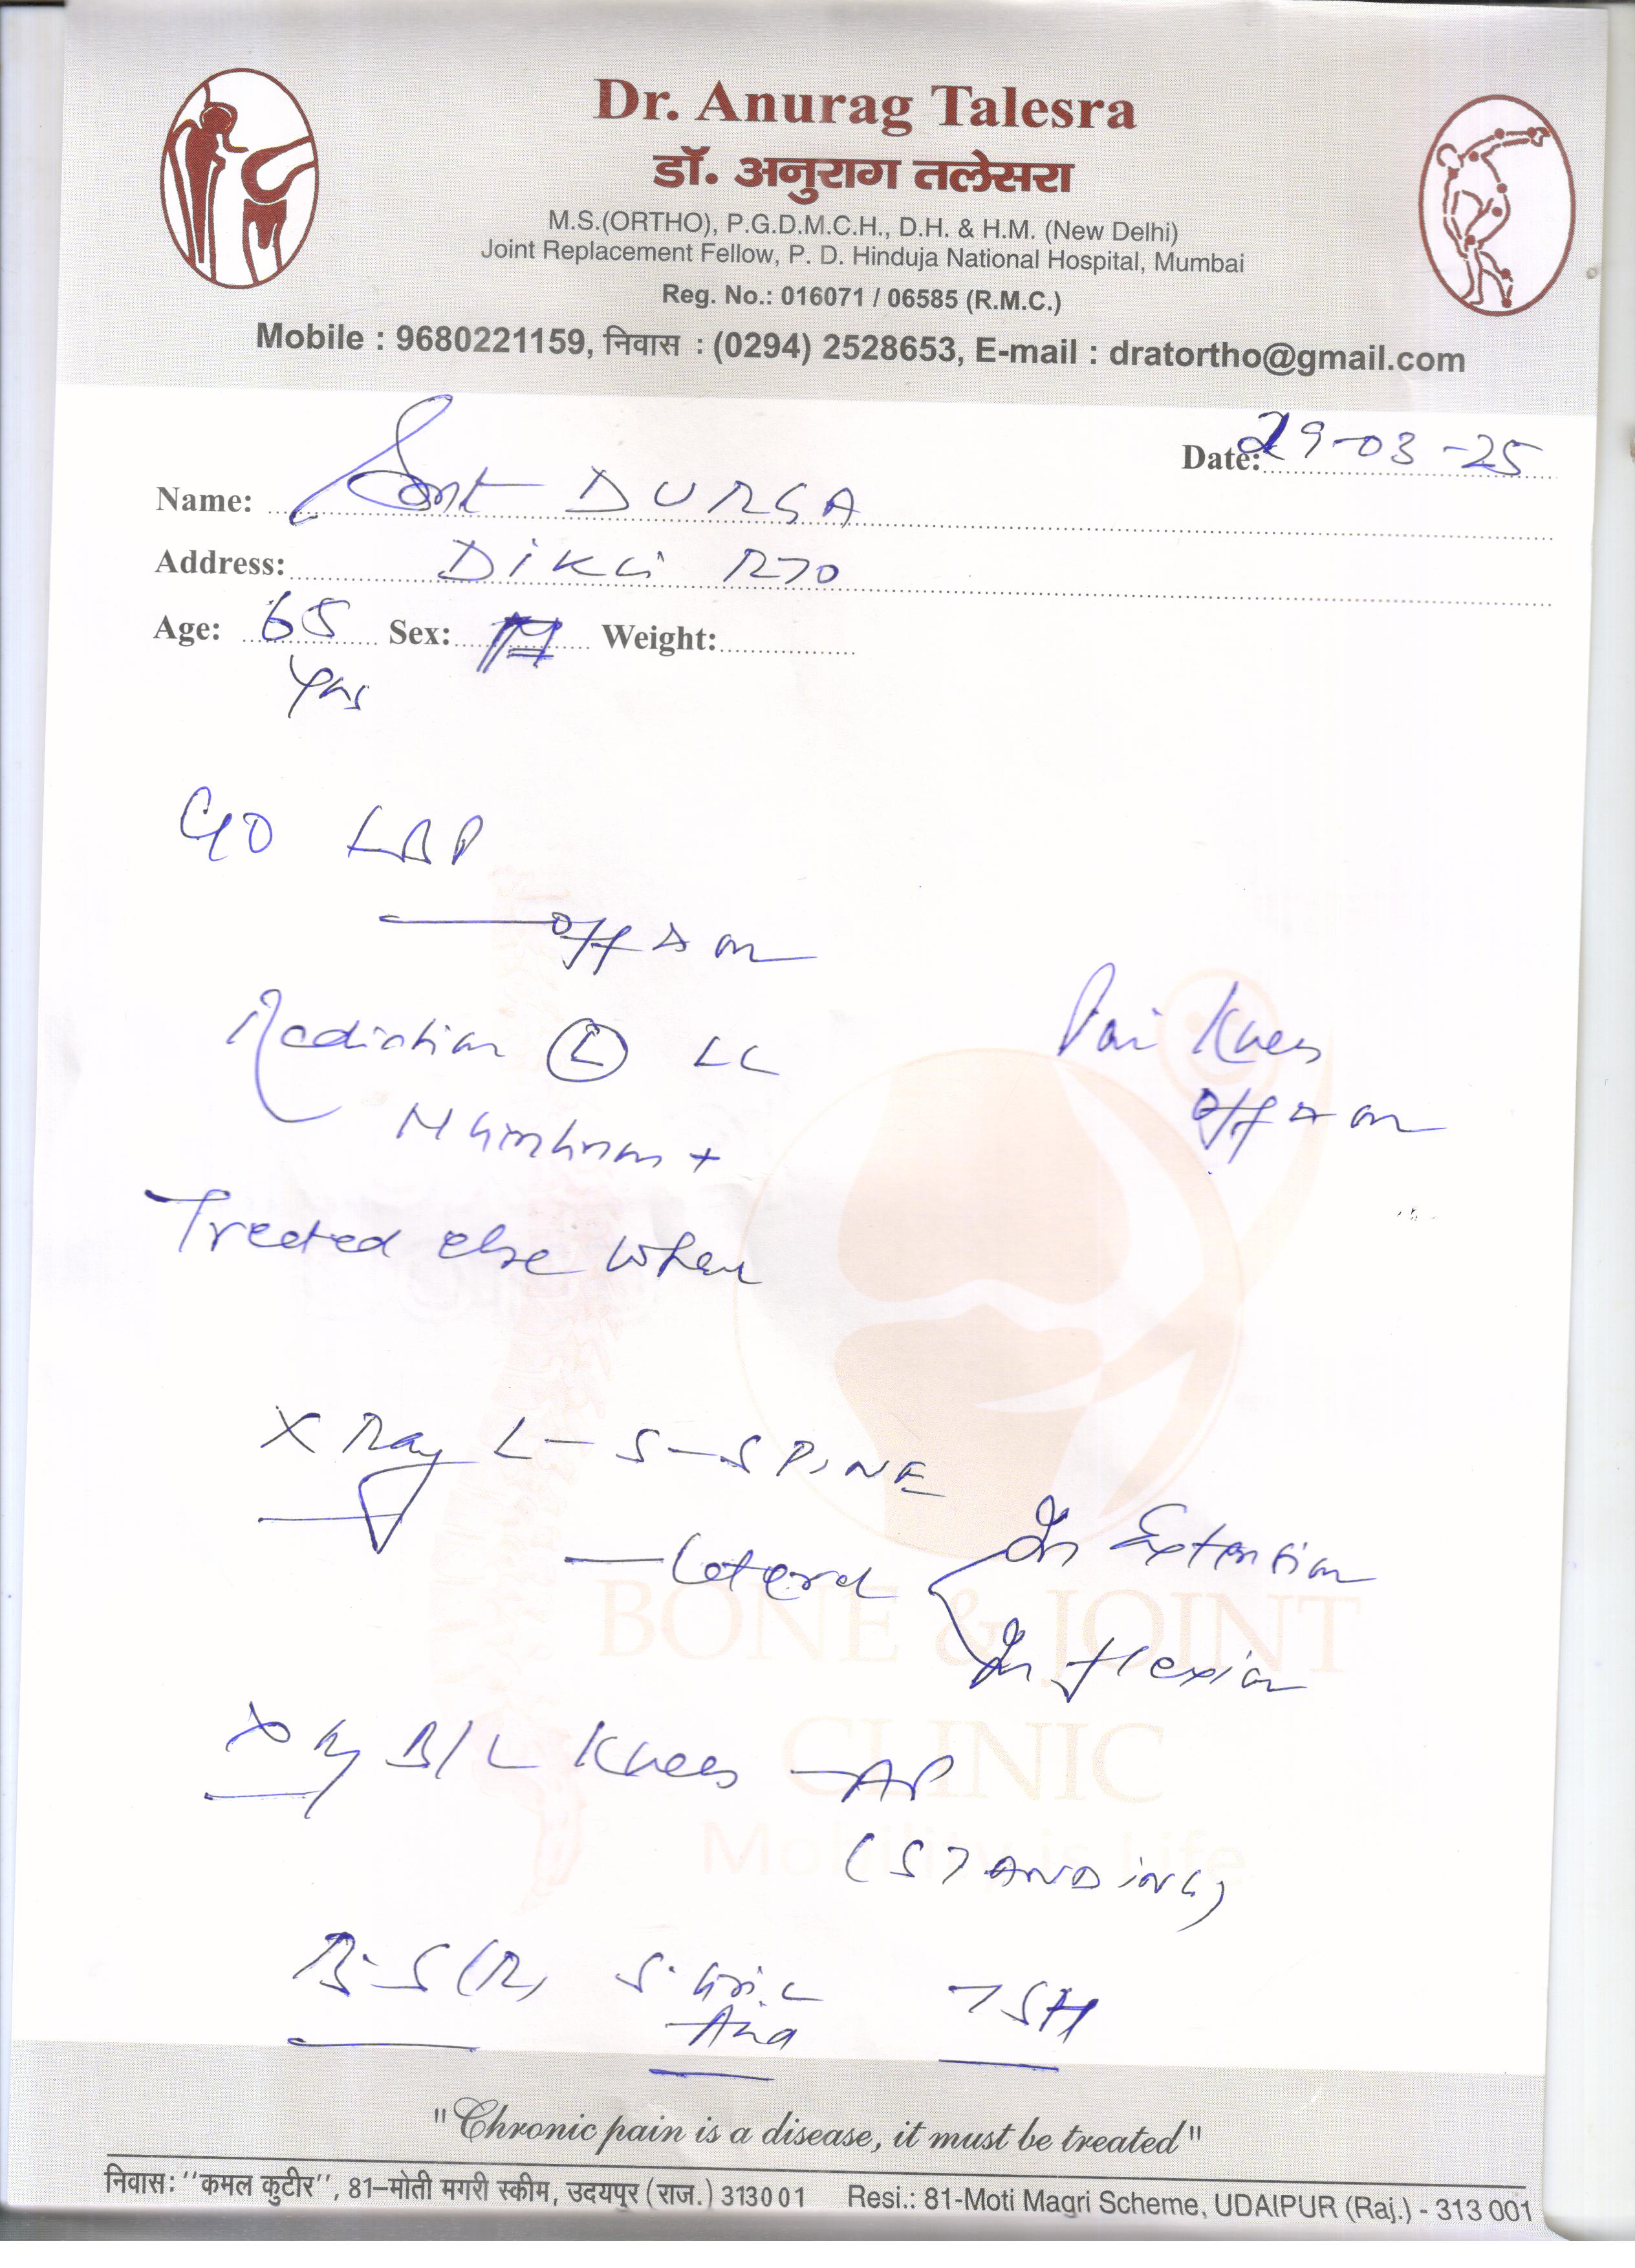 Dr. Anurag Talesra
डॉ. अनुराग तलेसरा
M.S.(ORTHO), P.G.D.M.C.H., D.H. & H.M. (New Delhi)
Joint Replacement Fellow, P. D. Hinduja National Hospital, Mumbai
Reg. No.: 016071 / 06585 (R.M.C.)
Mobile : 9680221159, निवास : (0294) 2528653, E-mail : dratortho@gmail.com
Date: 29-03-25
Name: Smt DURGA
Address:
Age: 65 Sex: Weight:
Yrs
C/O LBP
off & on
Radiation (L) LL
Pain Knees
off & on
Treated else where
X Ray L-S-SPINE
Lateral
In Extension
In flexion
X Ray B/L Knees - AP
(STANDING)
S. Uric TSH
Acid
BONE & JOINT
CLINIC
Mobility is Life
"Chronic pain is a disease, it must be treated"
निवास: "कमल कुटीर", 81-मोती मगरी स्कीम, उदयपुर (राज.) 313001 Resi.: 81-Moti Magri Scheme, UDAIPUR (Raj.) - 313 001